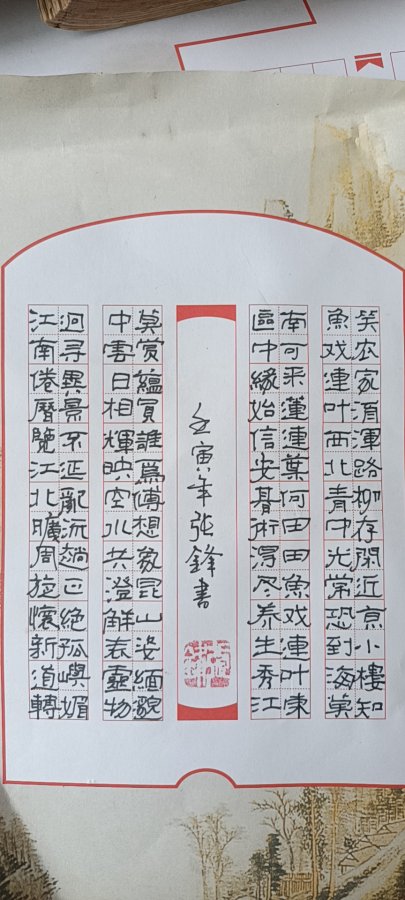 笑农家消渾路柳存閑近京小樓知
魚戏連叶西北青中光常恐到海莫
南可采蓮連葉何田田魚戏連叶東
區中緣始信安朞術淂尽养生秀江
壬寅年张锋書
莫赏蘊真誰為傳想象昆山姿緬邈
中雲日相輝映空水共澄鮮表靈物
迴尋異景不延亂流趨正絕孤嶼媚
江南倦歷覽江北曠周旋懷新道轉